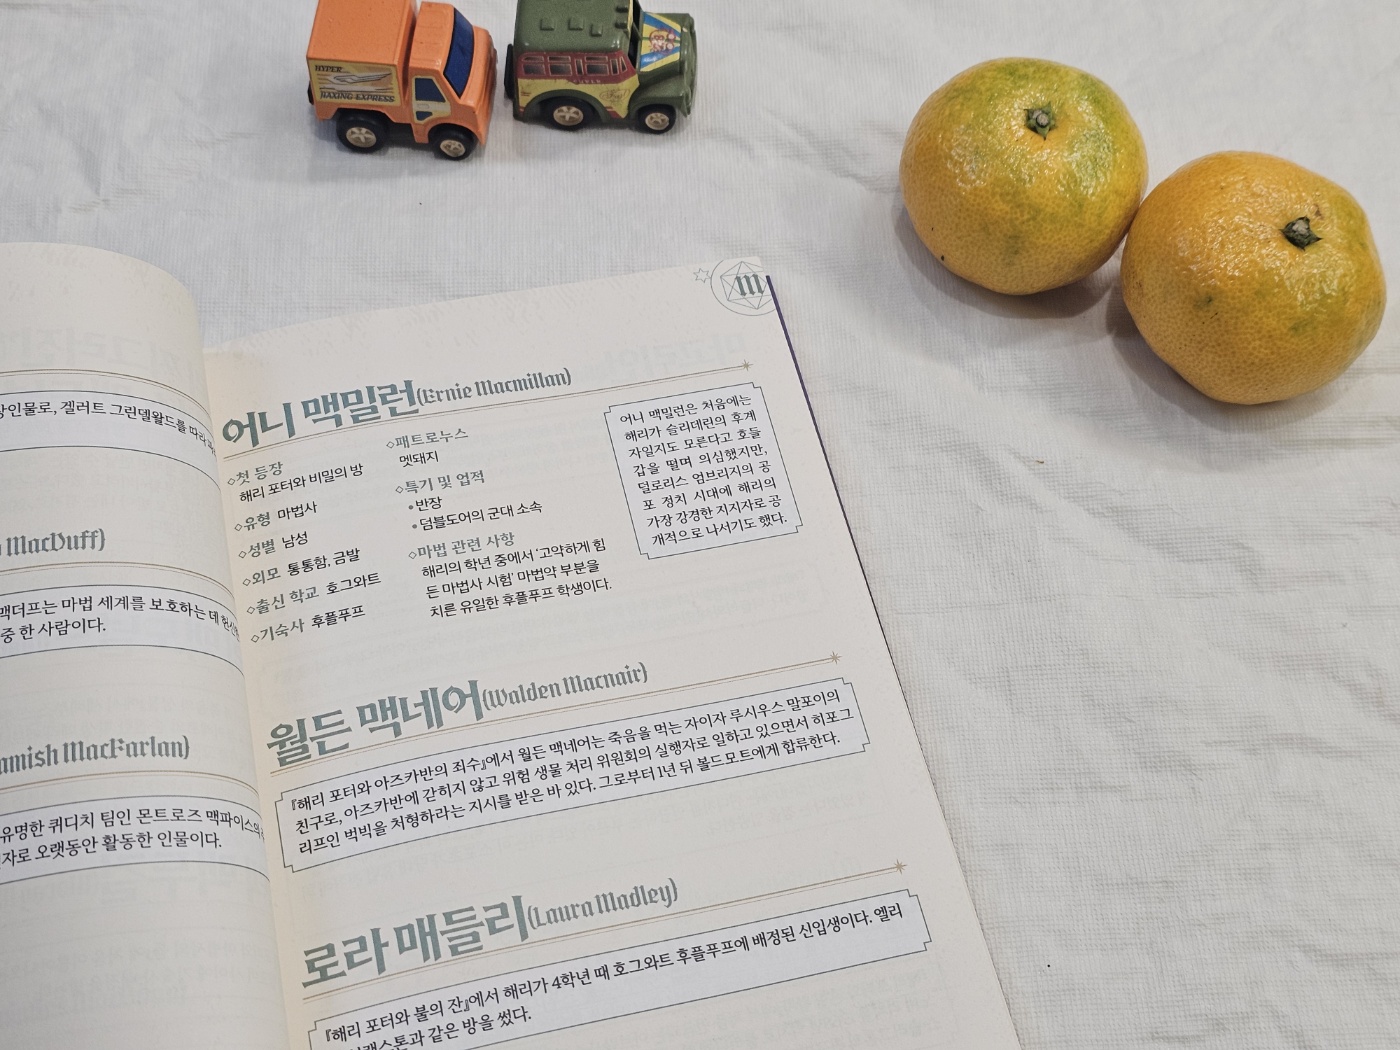 HYPER
상인물로, 겔러트 그린델왈드를 따라
MacDuff)
맥더프는 마법 세계를 보호하는 데
중 한 사람이다.
amish MacFarlan)
유명한 퀴디치 팀인 몬트로즈 맥파이스의
자로 오랫동안 활동한 인물이다.
M
어니 맥밀런(Ernie Macmillan)
◇첫 등장
해리 포터와 비밀의 방
◇유형 마법사
◇성별 남성
◇외모 통통함, 금발
◇출신 학교 호그와트
◇기숙사 후플푸프
◇패트로누스
멧돼지
◇특기 및 업적
•반장
•덤블도어의 군대 소속
◇마법 관련 사항
해리의 학년 중에서 '고약하게 힘
든 마법사 시험' 마법약 부분을
치른 유일한 후플푸프 학생이다.
어니 맥밀런은 처음에는
해리가 슬리데린의 후계
자일지도 모른다고 호들
갑을 떨며 의심했지만,
덜로리스 엄브리지의 공
포 정치 시대에 해리의
가장 강경한 지지자로 공
개적으로 나서기도 했다.
월든 맥네어(Walden Macnair)
『해리 포터와 아즈카반의 죄수』에서 월든 맥네어는 죽음을 먹는 자이자 루시우스 말포이의
친구로, 아즈카반에 갇히지 않고 위험 생물 처리 위원회의 실행자로 일하고 있으면서 히포그
리프인 벅빅을 처형하라는 지시를 받은 바 있다. 그로부터 1년 뒤 볼드모트에게 합류한다.
로라 매들리(Laura Madley)
『해리 포터와 불의 잔』에서 해리가 4학년 때 호그와트 후플푸프에 배정된 신입생이다. 엘리
같은 방을 썼다.